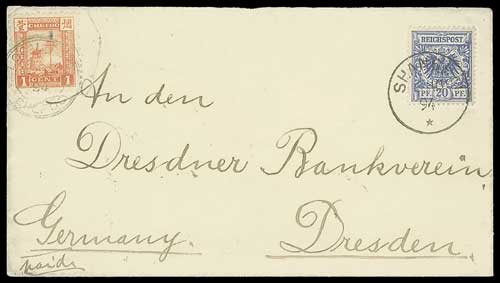 CHEFOO
1 CENT 1
REICHSPOST
PF. 20 PF.
94
An den
Dresdner Bankverein
Germany. Dresden.